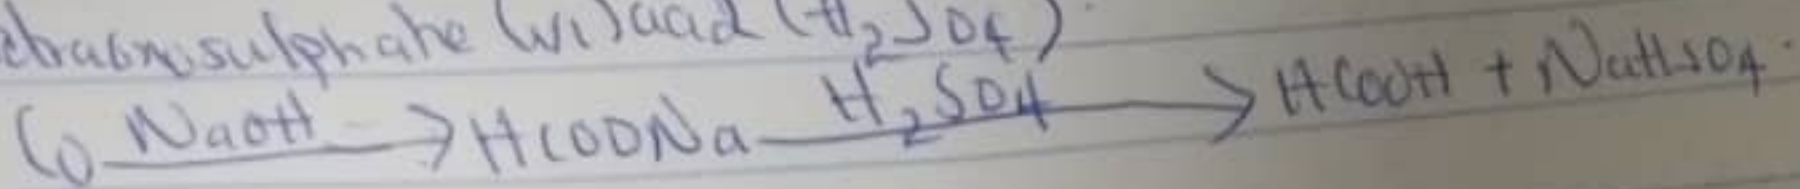 sulphate (VI) acid (H₂SO₄)
CO NaOH → HCOONa H₂SO₄ → HCOOH + NaHSO₄.